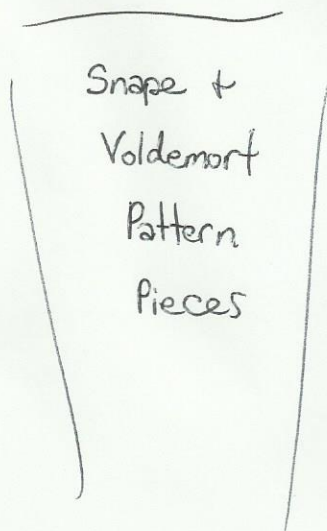 Snape +
Voldemort
Pattern
Pieces